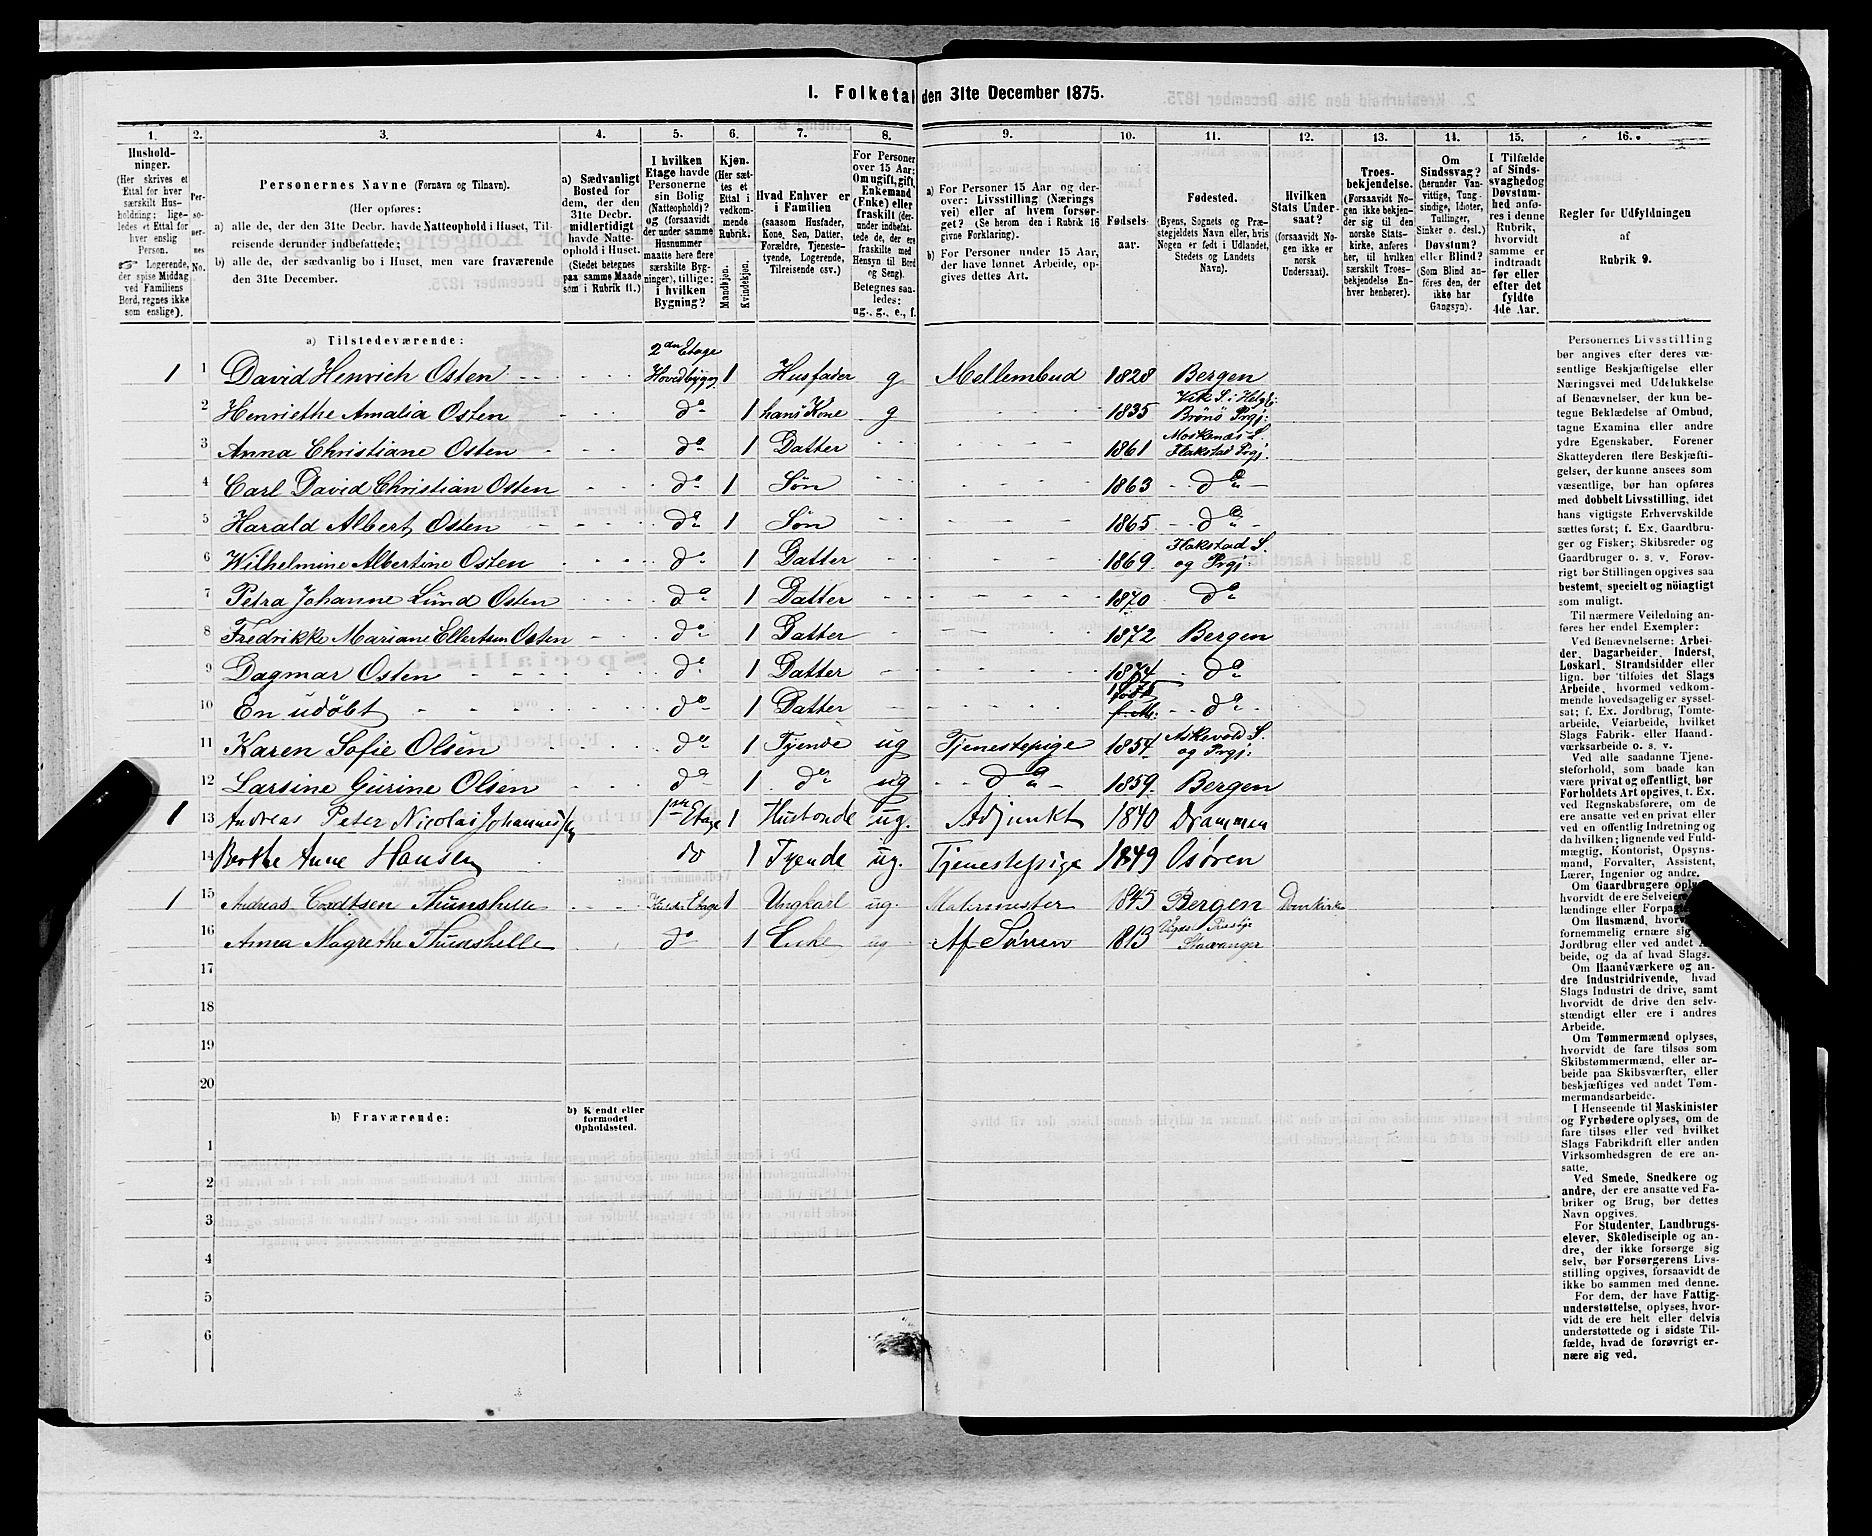 I. Folketal den 31te December 1875.
1. 2. 3. 4. 5. 6. 7. 8. 9. 10. 11. 12. 13. 14. 15. 16.
Hushold-
ninger.
(Her skrives et
Ettal for hver
særskilt Hus-
holdning; lige-
ledes et Ettal for
hver enslig
Person.
Logerende,
der spise Middag
ved Familiens
Bord, regnes ikke
som enslige).
Per-
so-
ner-
nes
No.
Personernes Navne (Fornavn og Tilnavn).
(Her opføres:
a) alle de, der den 31te Decbr. havde Natteophold i Huset, Til-
reisende derunder indbefattede;
b) alle de, der sædvanlig bo i Huset, men vare fraværende
den 31te December.
a) Sædvanligt
Bosted for
dem, der den
31te Decbr.
midlertidigt
havde Natte-
ophold i Huset.
(Stedet betegnes
paa samme Maade
som i Rubrik 11.)
I hvilken
Etage havde
Personerne
sin Bolig
(Natteophold)?
og (forsaavidt
der under samme
Husnummer
maatte høre flere
særskilte Byg-
ninger), tillige:
i hvilken
Bygning?
Kjøn.
(Her sæt-
tes et Ettal
i vedkom-
mende
Rubrik.
Mandkjøn.
Kvindekjøn.
Hvad Enhver er
i Familien
(saasom Husfader,
Kone, Søn, Datter,
Forældre, Tjeneste-
tyende, Logerende,
Tilreisende osv.)
For Personer
over 15 Aar:
Om ugift, gift,
Enkemand
(Enke) eller
fraskilt (der-
under indbefat-
tede de, der ere
fraskilte med
Hensyn til Bord
og Seng).
Betegnes saa-
ledes:
ug., g., e., f.
a) For Personer 15 Aar og der-
over: Livsstilling (Nærings
vei) eller af hvem forsør-
get? (Se herom den i Rubrik 16
givne Forklaring).
b) For Personer under 15 Aar,
der have lønnet Arbeide, op-
gives dettes Art.
Fødsels-
aar.
Fødested.
(Byens, Sognets og Præ-
stegjeldets Navn eller, hvis
Nogen er født i Udlandet,
Stedets og Landets
Navn).
Hvilken
Stats Under-
saat?
(forsaavidt No-
gen ikke er
norsk
Undersaat).
Troes-
bekjendelse.
(Forsaavidt No-
gen ikke bekjen-
der sig til den
norske Stats-
kirke, anføres
her, til hvilken
særskilt Troes-
bekjendelse En-
hver henhører).
Om
Sindssvag?
(herunder Van-
vittige, Tung-
sindige, Idioter,
Tullinger,
Sinker o. desl.)
Døvstum?
eller Blind?
(Som Blind an-
føres den, der
ikke har
Gangsyn).
I Tilfælde
af Sinds-
svaghed og
Døvstum-
hed anfø-
res i denne
Rubrik,
hvorvidt
samme er
indtraadt
før eller
efter det
fyldte
4de Aar.
Regler for Udfyldningen
af
Rubrik 9.
a) Tilstedeværende:
1 1 David Henrich Osten 2den Etage Hovedbygn 1 Husfader g Mellembud 1828 Bergen
2 Henriethe Amalia Osten do 1 hans Kone g 1835 Vik S: Helgl: Brønø Prgj:
3 Anna Christiane Osten do 1 Datter 1861 Moskenæs S. Flakstad Prgj.
4 Carl David Christian Osten do 1 Søn 1863 do
5 Harald Albert Osten do 1 Søn 1865 do
6 Wilhelmine Albertine Osten do 1 Datter 1869 Flakstad S. og Prgj:
7 Petra Johanne Lund Osten do 1 Datter 1870 do
8 Fredrikke Mariane Ellertsen Osten do 1 Datter 1872 Bergen
9 Dagmar Osten do 1 Datter 1874 do
10 En udöbt do 1 Datter 1875 do
11 Karen Sofie Olsen do 1 Tyende ug Tjenestepige 1854 Askevold S. og Prgj:
12 Larsine Gurine Olsen do 1 do ug do 1859 Bergen
1 13 Andreas Peter Nicolai 1ste Etage 1 Husbonde ug. Adjunkt 1840 Drammen
14 Berthe Anne Hansen do 1 Tyende ug. Tjenestepige 1849 Osøren
1 15 Andreas Thunshelle Kjelder Etage 1 Ungkarl ug. Malermester 1845 Bergen
16 Anna Magrethe Thunshelle do 1 Enke ug Af Sønen 1813 Stavanger
17
18
19
20
b) Fraværende:
b) Kjendt eller
formodet
Opholdssted.
1
2
3
4
5
6
Personernes Livsstilling
bør angives efter deres væ-
sentlige Beskjæftigelse eller
Næringsvei med Udelukkelse
af Benævnelser, der kun be-
tegne Beklædelse af Ombud,
tagne Examina eller andre
ydre Egenskaber. Forener
Skatteyderen flere Beskjæfti-
gelser, der kunne ansees som
væsentlige, bør han opføres
med dobbelt Livsstilling, idet
hans vigtigste Erhvervskilde
sættes først; f. Ex. Gaardbru-
ger og Fisker; Skibsreder og
Gaardbruger o. s. v. Forøv-
rigt bør Stillingen opgives saa
bestemt, specielt og nöiagtigt
som muligt.
Til nærmere Veiledning an-
føres her endel Exempler:
Ved Benævnelserne: Arbei-
der, Dagarbeider, Inderst,
Løskarl, Strandsidder eller
lign. bør tilføies det Slags
Arbeide, hvormed vedkom-
mende hovedsagelig er syssel-
sat; f. Ex. Jordbrug, Tomte-
arbeide, Veiarbeide, hvilket
Slags Fabrik- eller Haand-
værksarbeide o. s. v.
Ved alle saadanne Tjene-
steforhold, som baade kan
være privat og offentligt, bør
Forholdets Art opgives, t. Ex.
ved Regnskabsførere, om de
ere ansatte ved en privat eller
ved en offentlig Indretning og
da hvilken; lignende ved Fuld-
mægtig, Kontorist, Opsyns-
mand, Forvalter, Assistent,
Lærer, Ingeniør og andre.
Om Gaardbrugere oplyses,
hvorvidt de ere Selveiere,
lændinge eller
Om Husmænd,
fornemmelig ernære sig
Jordbrug eller ved andet
beide, og da af hvad Slags.
Om Haandværkere og an-
dre Industridrivende, hvad
Slags Industri de drive, samt
hvorvidt de drive den selv-
stændigt eller ere i andres
Arbeide.
Om Tømmermænd oplyses,
hvorvidt de fare tilsøs som
Skibstømmermænd, eller ar-
beide paa Skibsværfter, eller
beskjæftiges ved andet Tøm-
mermandsarbeide.
I Henseende til Maskinister
og Fyrbødere oplyses, om de
fare tilsøs eller ved hvilket
Slags Fabrikdrift eller anden
Virksomhedsgren de ere an-
satte.
Ved Smede, Snedkere og
andre, der ere ansatte ved Fa-
briker og Brug, bør dettes
Navn opgives.
For Studenter, Landbrugs-
elever, Skoledisciple og an-
dre, der ikke forsørge sig
selv, bør Forsørgerens Livs-
stilling opgives, forsaavidt de
ikke bo sammen med denne.
For dem, der have Fattig-
understøttelse, oplyses, hvor-
vidt de ere helt eller delvis
understøttede og i sidste Til-
fælde, hvad de forøvrigt er-
nære sig ved.